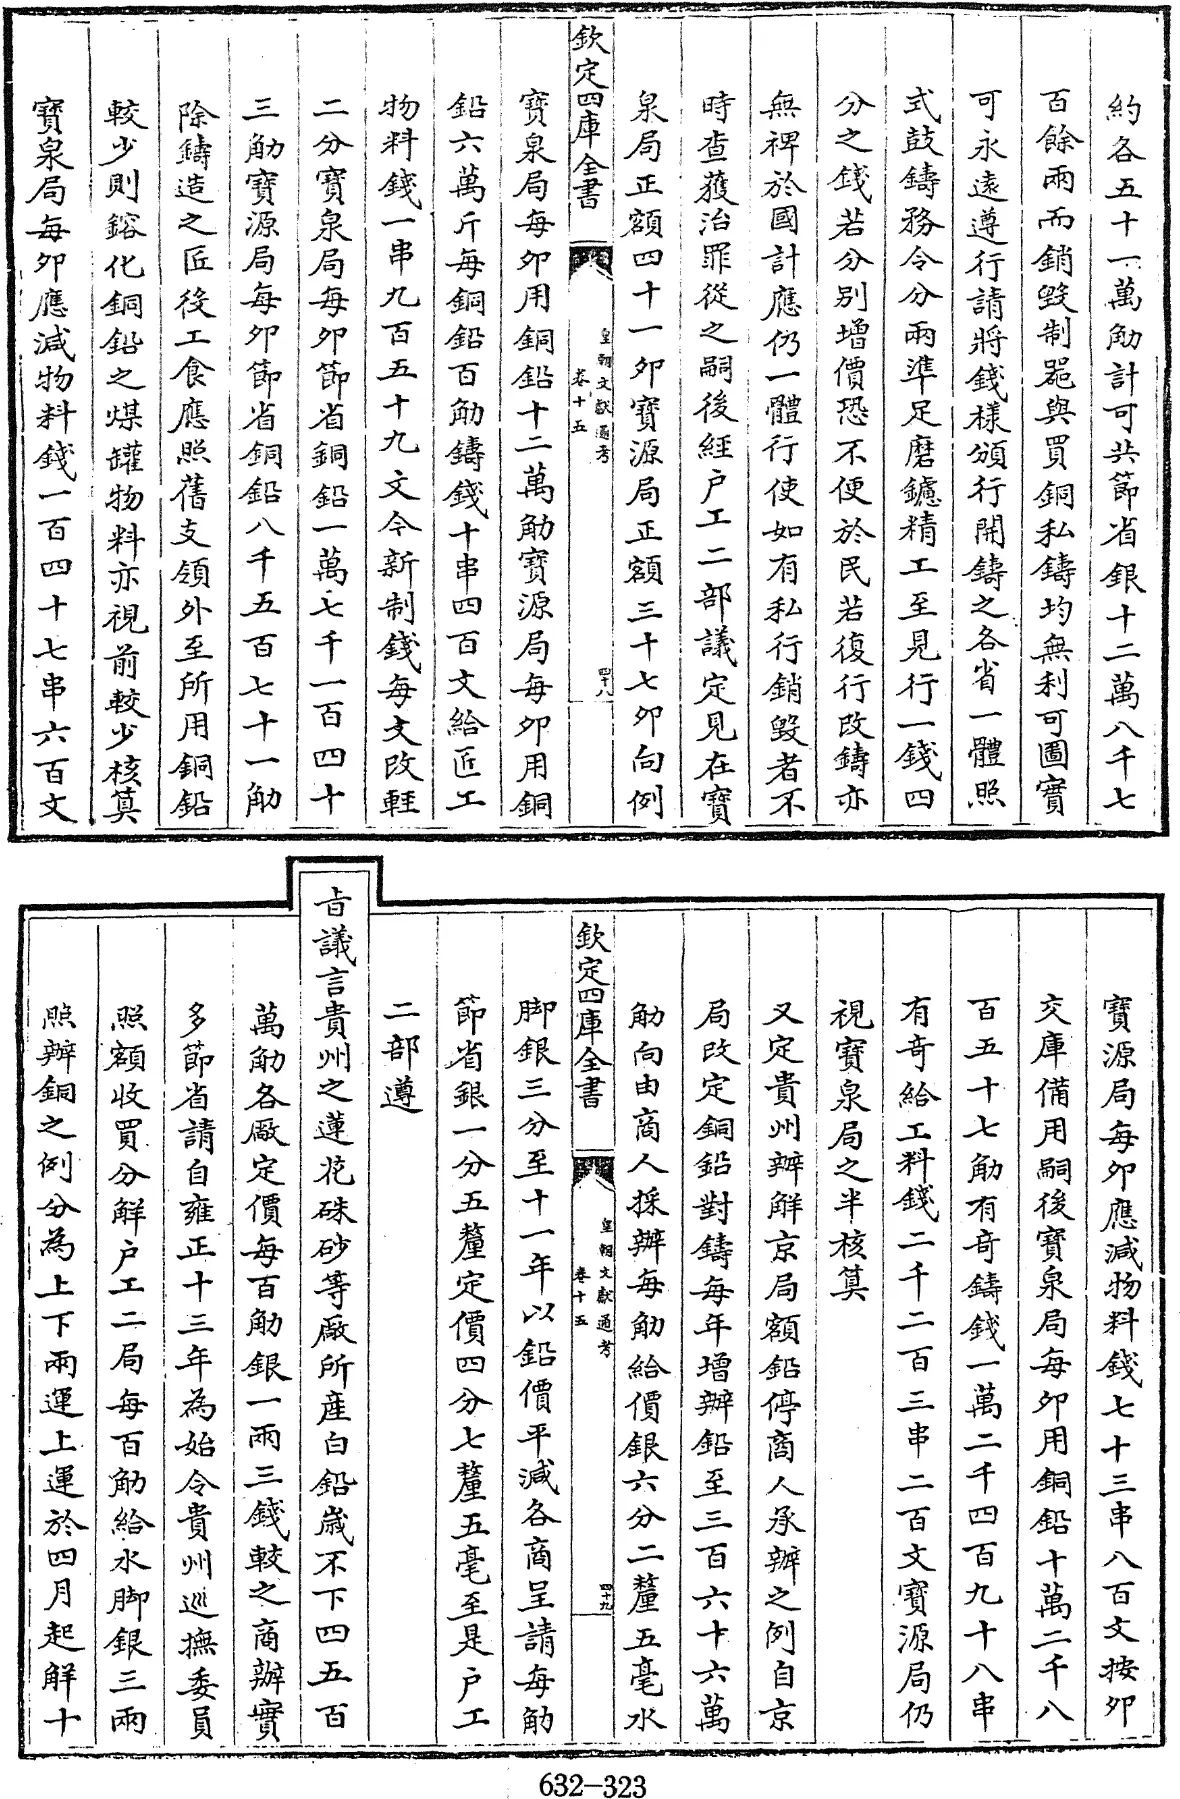 約各五十一萬觔計可共節省銀十二萬八千七
百餘兩而銷毀制器與買銅私鑄均無利可圖實
可永遠遵行請將錢様頒行開鑄之各省一體照
式鼓鑄務令分兩準足磨鑢精工至見行一錢四
分之錢若分别増價恐不便於民若復行改鑄亦
無裨於國計應仍一體行使如有私行銷毀者不
時查獲治罪從之嗣後經户工二部議定見在寶
泉局正額四十一夘寶源局正額三十七夘向例
欽定四庫全書
皇朝文獻通考
卷十五
四十八
寶泉局每夘用銅鉛十二萬觔寶源局每夘用銅
鉛六萬斤每銅鉛百觔鑄錢十串四百文給匠工
物料錢一串九百五十九文今新制錢每文改輕
二分寶泉局每夘節省銅鉛一萬七千一百四十
三觔寶源局每夘節省銅鉛八千五百七十一觔
除鑄造之匠役工食應照舊支領外至所用銅鉛
較少則鎔化銅鉛之煤罐物料亦視前較少核算
寶泉局每夘應減物料錢一百四十七串六百文
寶源局每夘應減物料錢七十三串八百文按夘
交庫備用嗣後寶泉局每夘用銅鉛十萬二千八
百五十七觔有奇鑄錢一萬二千四百九十八串
有奇給工料錢二千二百三串二百文寶源局仍
視寶泉局之半核算
又定貴州辦解京局額鉛停商人承辦之例自京
局改定銅鉛對鑄每年增辦鉛至三百六十六萬
觔向由商人採辦每觔給價銀六分二釐五毫水
欽定四庫全書
皇朝文獻通考
卷十五
四十九
脚銀三分至十一年以鉛價平減各商呈請每觔
節省銀一分五釐定價四分七釐五毫至是户工
二部遵
旨議言貴州之蓮花硃砂等廠所産白鉛歲不下四五百
萬觔各厰定價每百觔銀一兩三錢較之商辦實
多節省請自雍正十三年為始令貴州巡撫委員
照額收買分解户工二局每百觔給水脚銀三兩
照辦銅之例分為上下兩運上運於四月起解十
632-323